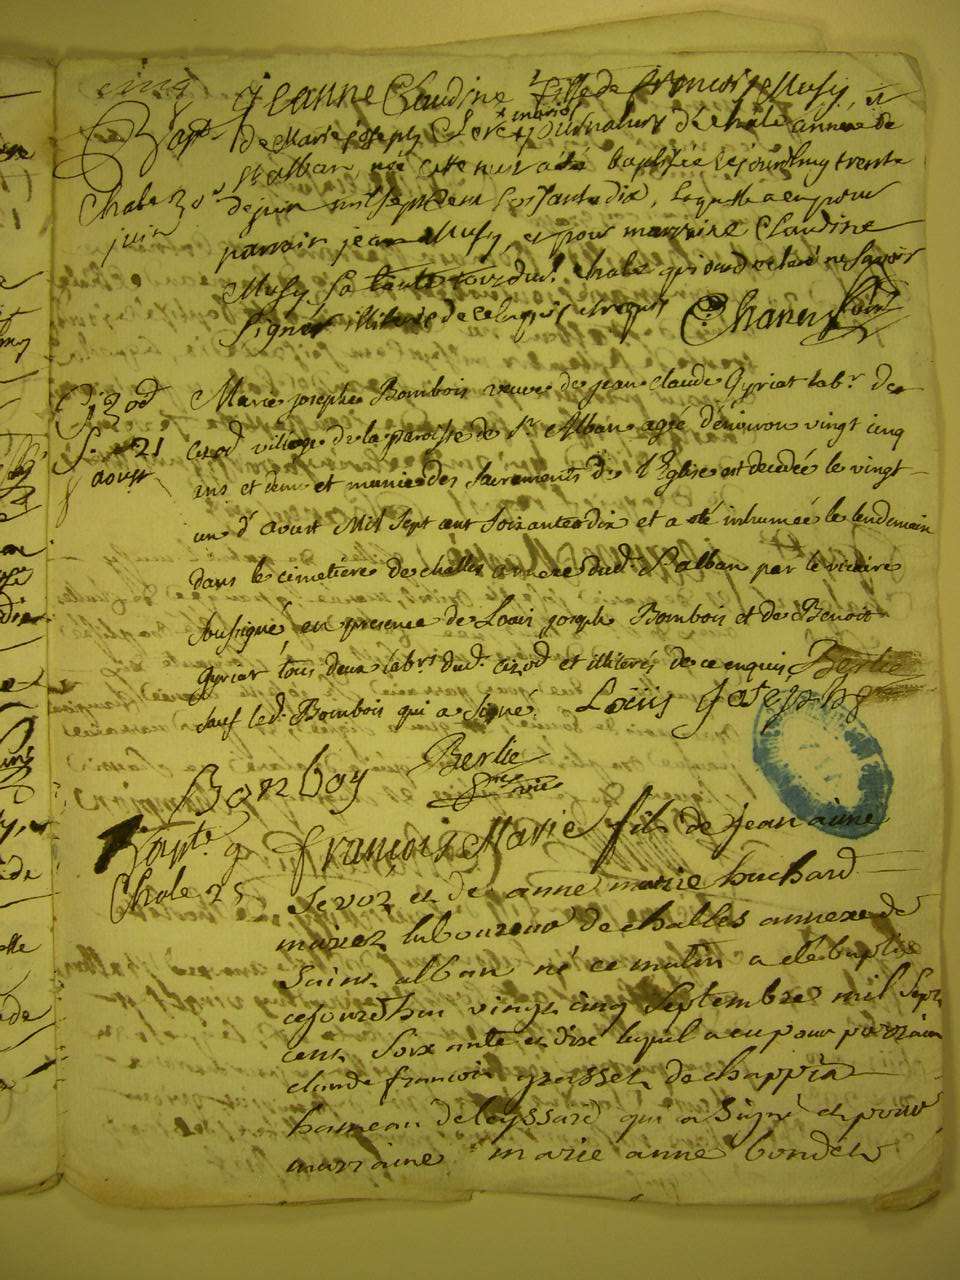 cinq
Jeanne Claudine fille de françois Musy et
Bapt. de Marie joseph mariés journaliers de chale annexe de
st alban, née cette nuit a été baptisée cejourdhuy trente
Chale 30e de juin mil sept cent soixante dix, laquelle a eu pour
juin
parrain jean Musy et pour marraine Claudine
Musy sa tante tous dud. chale qui ont declaré ne savoir
signer illiterés de ce enquis et requis
Cizod
S. 21
aoust
Marie josephe Bombois veuve de jean claude Gyriat labr. de
cizod village de la paroisse de St Alban agée d'environ vingt cinq
ans et demi et munie des sacrements de l'Eglise est decedée le vingt
un d'aoust Mil sept cent soixante dix et a été inhumée le lendemain
dans le cimetiere de challes annexe dud. St alban par le vicaire
soussigné en presence de Louis joseph Bombois et de Benoit
Gyriat tous deux labrs dud. cizod et illiterés de ce enquis Berlie
sauf led. Bombois qui a signé. Loüis Josephe
Bonboy Berlie
vic
Bapte.
Chale 25
françois Marie fils de jean aimé
sevoz et de anne marie huchard
mariez laboureur de challes annexe de
saint alban né ce matin a été baptisé
cejourdhui vingt cinq septembre mil sept
cent soixante et dix lequel a eu pour parrain
claude françois grosset de chappiat
hameau de leyssard qui a signé et pour
marraine marie anne bondet